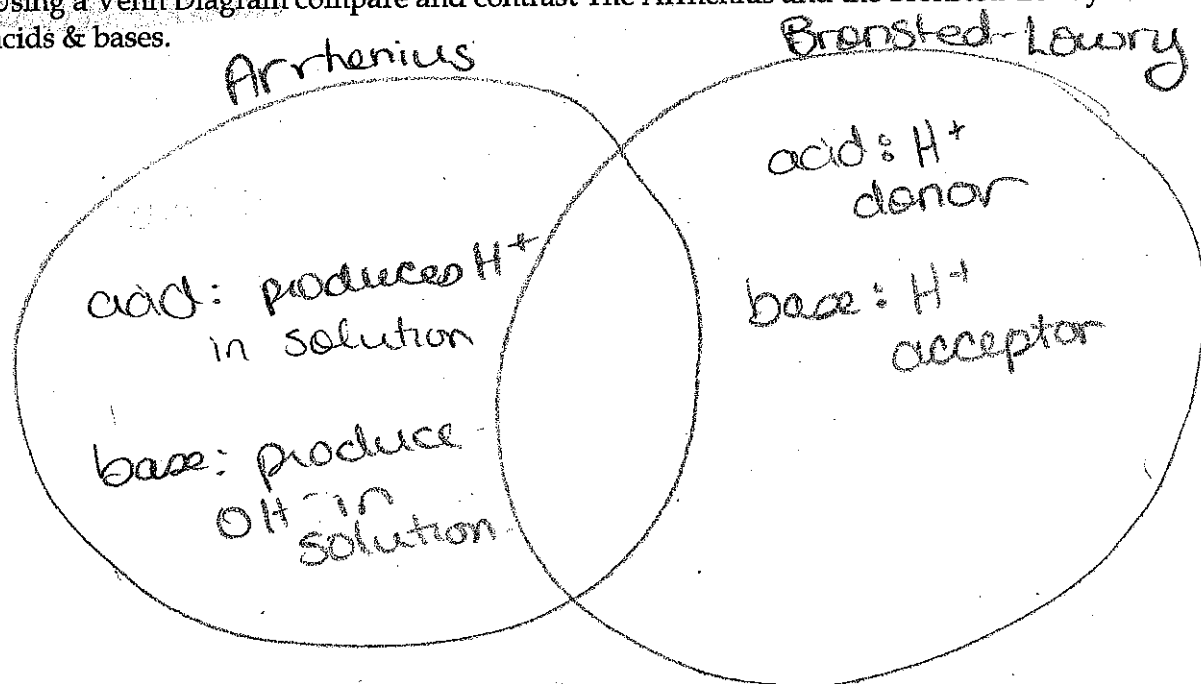 Using a Venn Diagram compare and contrast The Arrhenius and the
acids & bases.
Arrhenius
Bronsted-Lowry
acid: produces H+
in solution
base: produce
OH- in
solution
acid: H+
donor
base: H+
acceptor